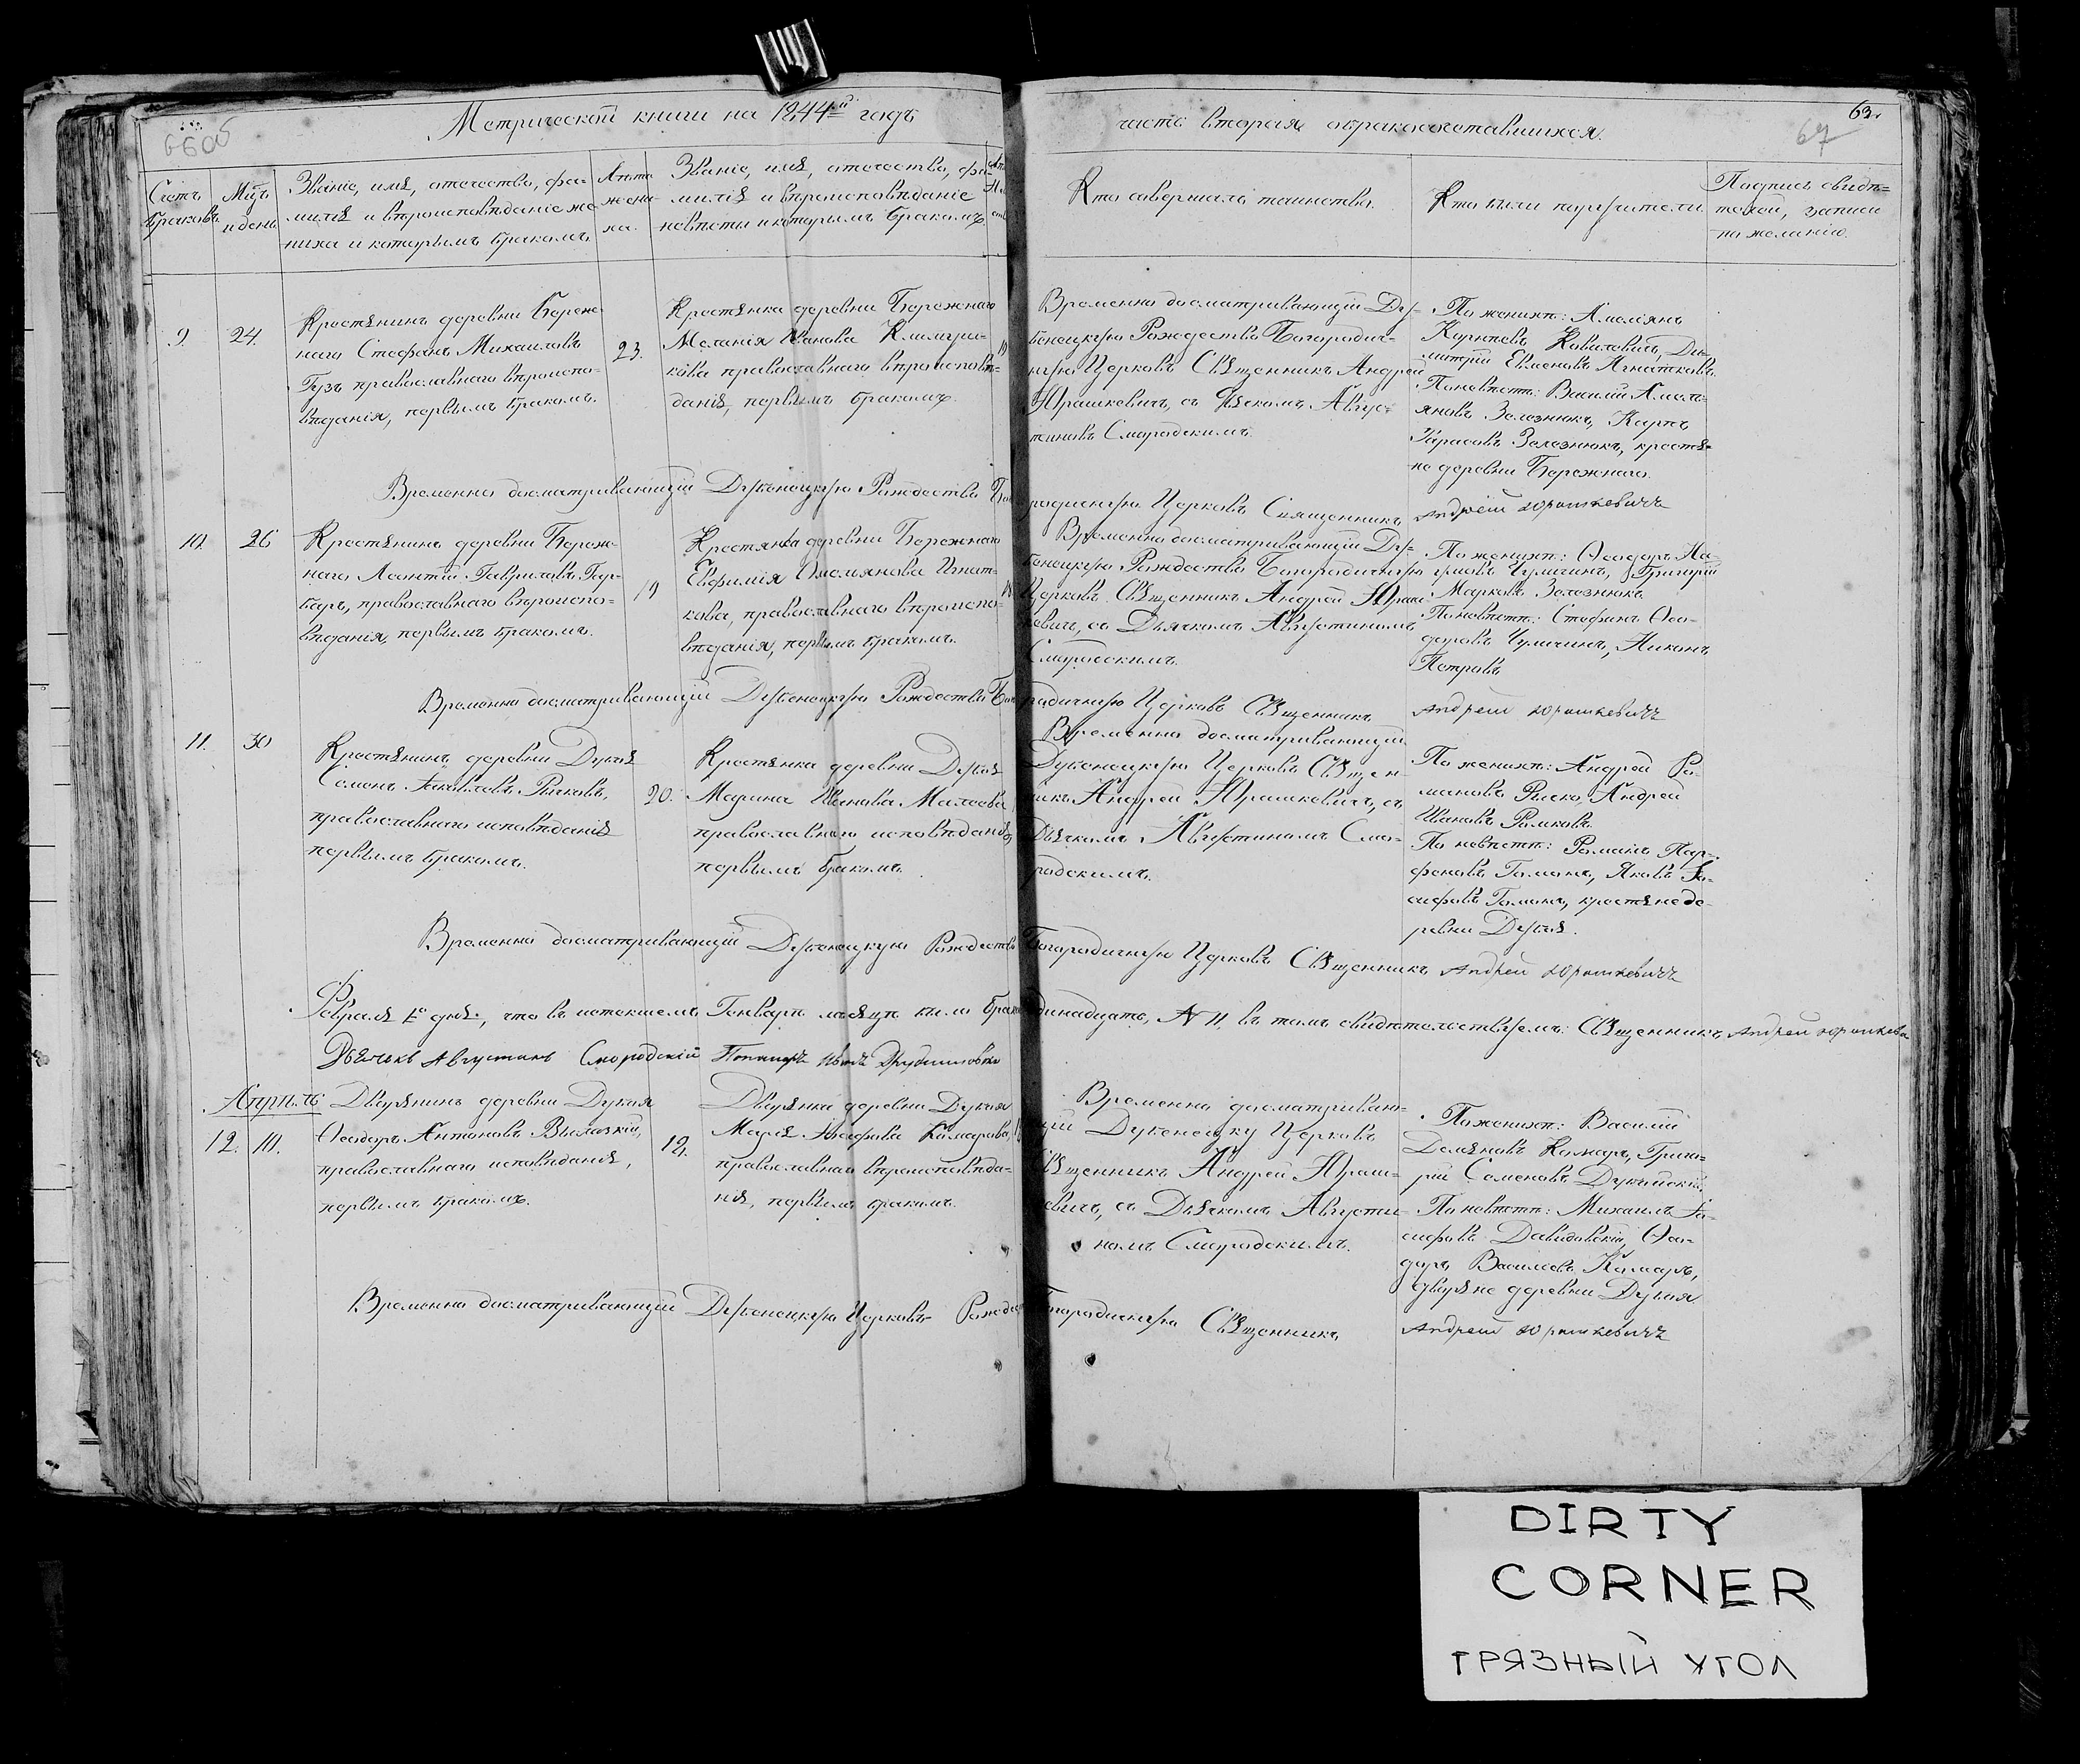 Метрической книги на 1844й годъ
часть вторая о бракосочетавшихся.
63.
67
660б
Счетъ браковъ
Мцъ и день
Званіе, имя, отечество, фа-
милія и вѣроисповѣданіе же-
ниха и которымъ бракомъ
Лѣта жени-
ха.
Званіе, имя, отечество, фа-
милія и вѣроисповѣданіе
невѣсты и которымъ бракомъ.
Кто совершалъ таинство.
Кто были поручители
Подпись свидѣ-
телей, записи
по желанію.
9.
24.
Крестянинъ деревни Береж-
наго Стефанъ Михаиловъ
Гузъ православнаго вѣроиспо-
вѣданія, первымъ бракомъ.
23.
Крестянка деревни Бережнаго
Меланія Иванова
православнаго вѣроисповѣ-
данія, первымъ бракомъ.
Временно досматривающій Ду-
бенецкую Рождество Богородич-
ную Церковь Священникъ Андрей
Юрашкевичъ, съ Дьякомъ Авгус-
тиномъ Смородскимъ.
По женихѣ: Амеліянъ
Корнѣевъ Ковалевичъ, Ди-
митрій Евменовъ Игнатковъ.
По невѣстѣ: Василій Амель-
яновъ Зелезнюкъ, Карпъ
Тарасовъ Зелезнюкъ, крестя-
не деревни Бережнаго.
Временно досматривающій Дубенецкую Рождество Бого
родичную Церковь Священникъ Андрей Юрашкевичъ
10.
26
Крестянинъ деревни Береж-
наго Леонтій Гавриловъ Гор-
баръ, православнаго вѣроиспо-
вѣданія, первымъ бракомъ.
19
Крестянка деревни Бережнаго
Евфимія Омелянова Игнат-
кова, православнаго вѣроиспо-
вѣданія, первымъ бракомъ.
Временно досматривающій Ду-
бенецкую Рождество Богородичную
Церковь Священникъ Андрей Юраш
кевичъ, съ Дьячкомъ Августиномъ
Смородскимъ.
По женихѣ: Ѳеодоръ На-
умовъ Чумичинъ, Григорій
Марковъ Зелезнюкъ.
По невѣстѣ: Стефанъ Ѳео-
доровъ Чумичинъ, Никонъ
Петровъ
Временно досматривающій Дубенецкую Рождество Бого
родичную Церковь Священникъ Андрей Юрашкевичъ
11.
30
Крестянинъ деревни Дубая
Семенъ Іаковлевъ Рысковъ,
православнаго исповѣданія
первымъ бракомъ.
20.
Крестянка деревни Дубая
Марина Иванова
православнаго исповѣданія,
первымъ бракомъ.
Временно досматривающій
Дубенецкую Церковь Священ-
никъ Андрей Юрашкевичъ, съ
Дьячкомъ Августиномъ Смо-
родскимъ.
По женихѣ: Андрей Ро-
мановъ Рыско, Андрей
Ивановъ Ромковъ.
По невѣстѣ: Романъ Пар-
феновъ Гоманъ, Яковъ Іо-
сифовъ Гоманъ, крестяне де-
ревни Дубая.
Временно досматривающій Дубенецкую Рождество Богородичную Церковь Священникъ Андрей Юрашкевичъ
Февраля 1го дня, что въ истекшемъ Генварѣ мѣсяцѣ было браковъ одинадцать, N 11, въ томъ свидѣтельствуемъ: Священникъ Андрей Юрашкеви
Дьячекъ Августинъ Смородскій Пономарь Иванъ
Апрѣль
12.
10.
Дворянинъ деревни Дубая
Ѳеодоръ Антоновъ Вылазкій,
православнаго исповѣданія,
первымъ бракомъ.
Дворянка деревни Дубая
Марія Іосифова Комарова,
православнаго вѣроисповѣда-
нія, первымъ бракомъ.
Временно досматриваю-
щій Дубенецку Церковь
Священникъ Андрей Юраш-
кевичъ, съ Дьячкомъ Августи-
номъ Смородскимъ.
По женихѣ: Василій
Демяновъ Комаръ, Григо-
рій Семеновъ Дубайскій.
По невѣстѣ: Михаилъ Іо-
сифовъ Давидовскій, Ѳео-
доръ Василіевъ Комаръ,
дворяне деревни Дубая
Временно досматривающій Дубенецкую Церковь Рождество Богородичную Священникъ Андрей Юрашкевичъ
DIRTY
CORNER
ГРЯЗНЫЙ УГОЛ